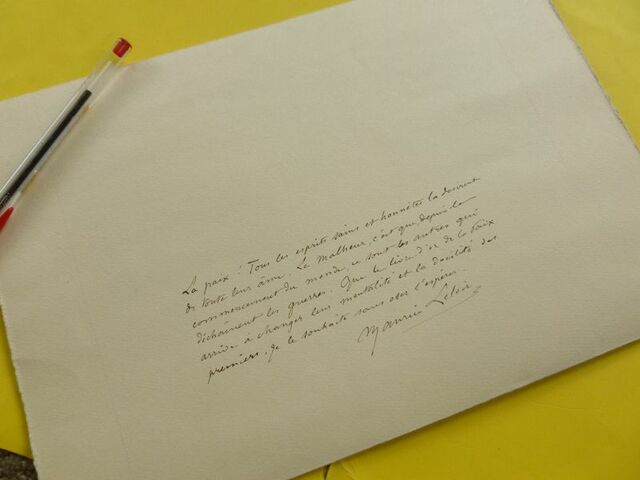 La paix ! Tous les esprits sains et honnêtes la désirent
de toute leur âme. Le malheur, c'est que depuis le
commencement du monde, ce sont les autres qui
déchaînent les guerres. Que le livre d'or de la Paix
arrive à changer leur mentalité et la docilité des
premiers. Je le souhaite sans oser l'espérer.
Maurice Leloir